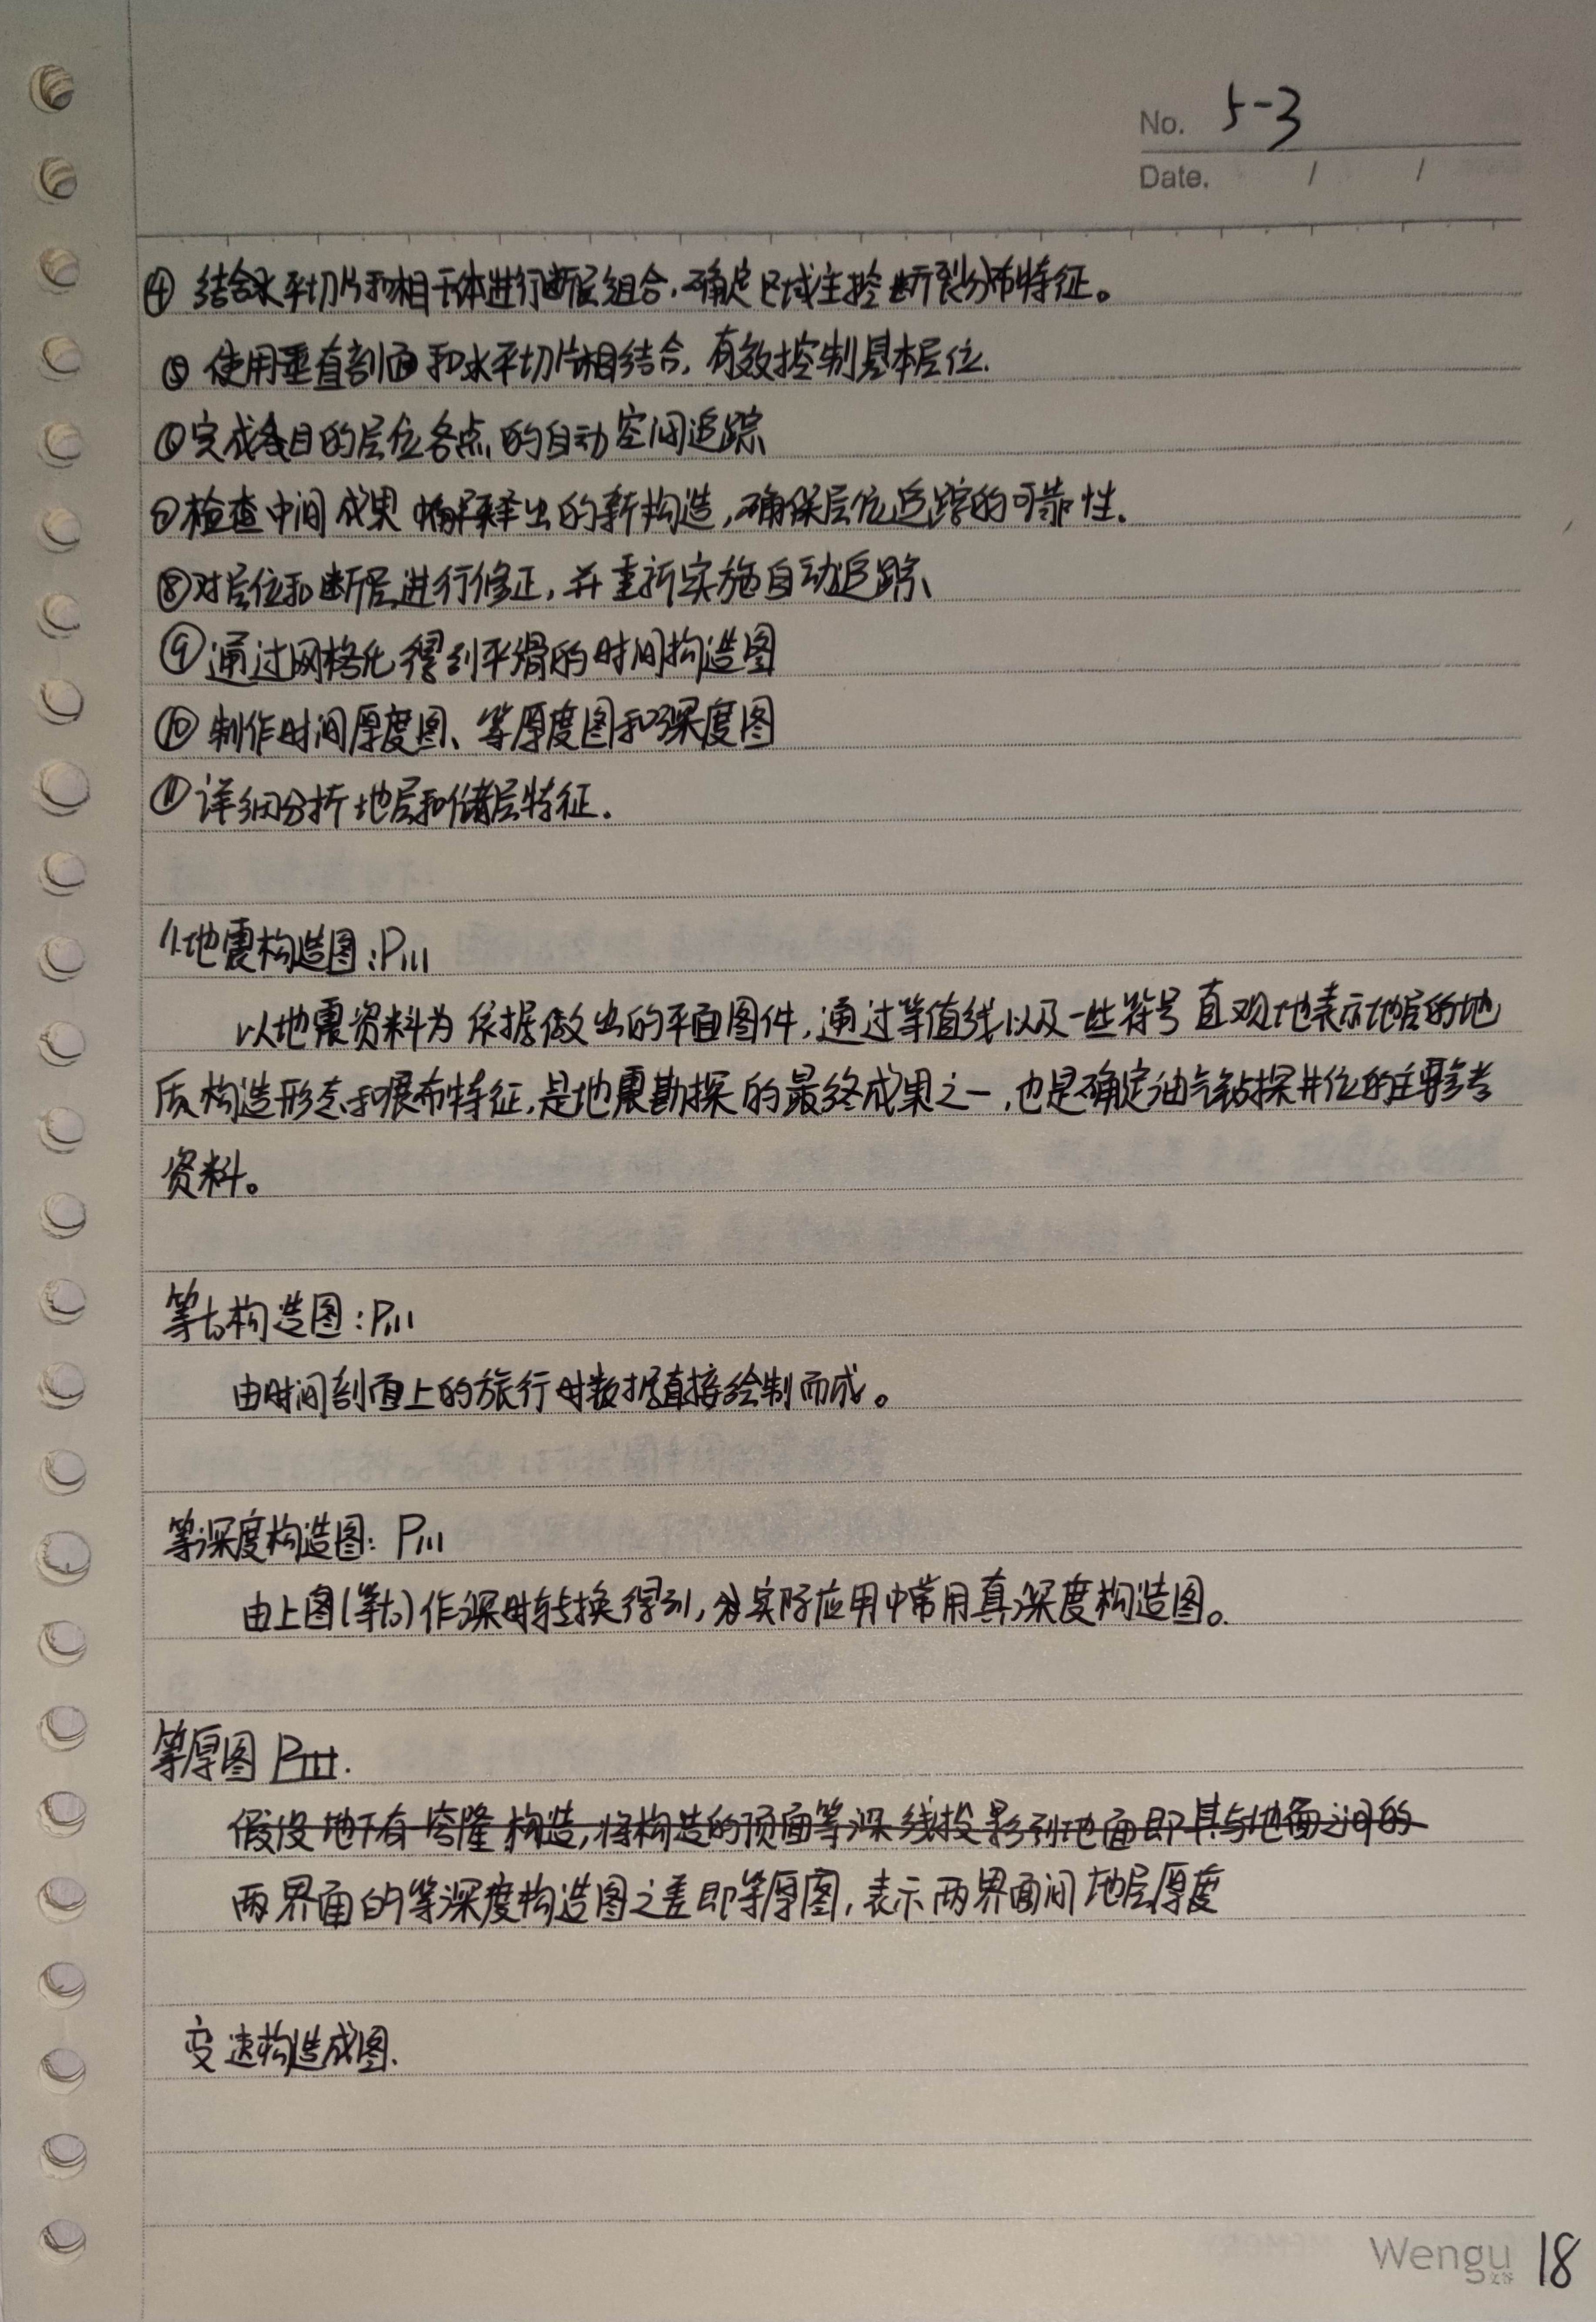 No. 5-3
Date. / /
④ 结合水平切片和相干体进行断层组合,确定区域主控断裂分布特征。
⑤ 使用垂直剖面和水平切片相结合,有效控制基本层位.
⑥完成各目的层位各点的自动空间追踪
⑦检查中间成果 解释出的新构造,确保层位追踪的可靠性.
⑧对层位和断层进行修正,并重新实施自动追踪、
⑨通过网格化得到平滑的时间构造图
⑩ 制作时间厚度图、等厚度图和深度图
⑪详细分析地层和储层特征.
11.地震构造图:P111
以地震资料为依据做出的平面图件,通过等值线以及一些符号直观地表示地层的地
质构造形态和展布特征,是地震勘探的最终成果之一,也是确定油气钻探井位的主要参考
资料。
等t₀构造图:P111
由时间剖面上的旅行时数据直接绘制而成。
等深度构造图: P111
由上图(等t₀)作深时转换得到,实际应用中常用真深度构造图。
等厚图 P111.
假设地下有穹隆构造,将构造的顶面等深线投影到地面即其与地面之间的
两界面的等深度构造图之差即等厚图,表示两界面间地层厚度
变速构造成图.
Wengu 文谷 18